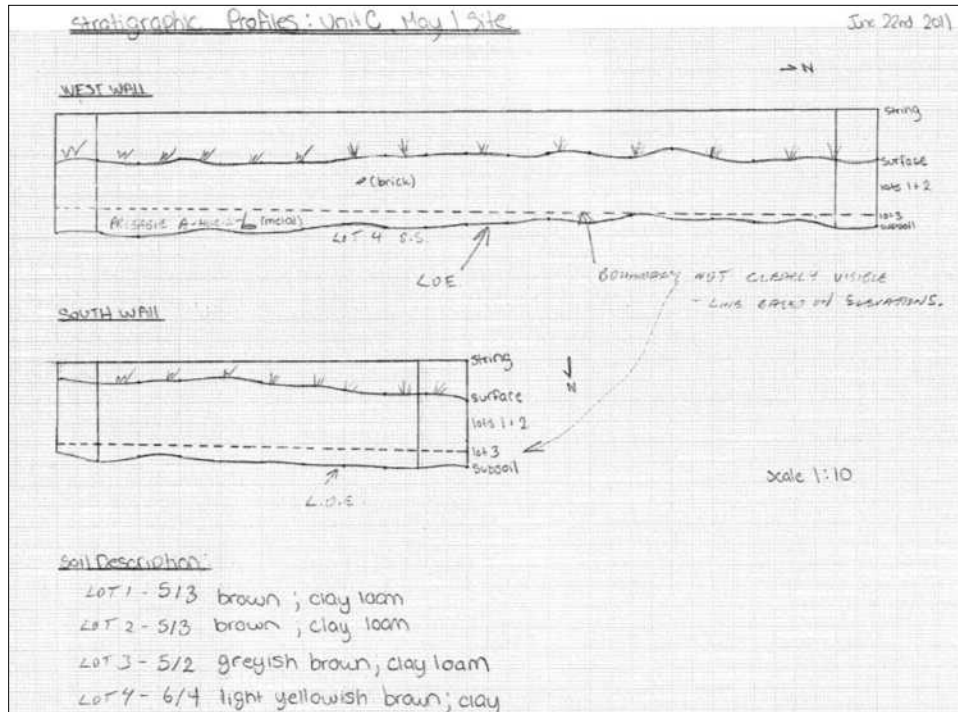 Stratigraphic Profiles: Unit C, May 1 Site
June 22nd 2011
→ N
WEST WALL
string
surface
(brick)
lots 1+2
A-Horiz (metal)
lot 3
subsoil
LOT 4 S.S.
L.O.E.
BOUNDARY NOT CLEARLY VISIBLE
- LINE BASED ON ELEVATIONS.
SOUTH WALL
string
N
surface
lots 1+2
lot 3
subsoil
L.O.E.
Scale 1:10
Soil Description:
LOT 1 - 5/3 brown; clay loam
LOT 2 - 5/3 brown; clay loam
LOT 3 - 5/2 greyish brown; clay loam
LOT 4 - 6/4 light yellowish brown; clay